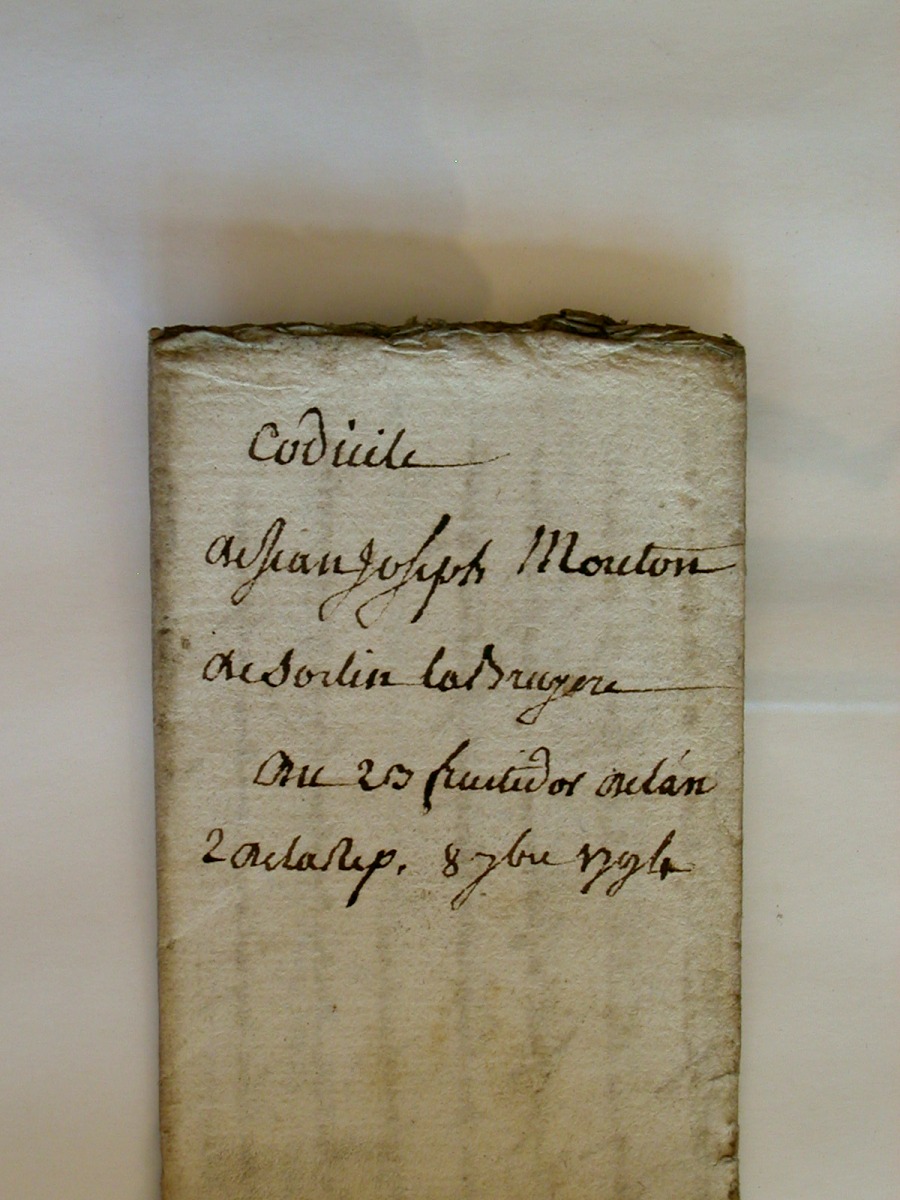 Codicile
de Jean Joseph Mouton
de Sorlin la Bruyere
du 23 fructidor de lán
2 de la Rep. 8 7bre 1794